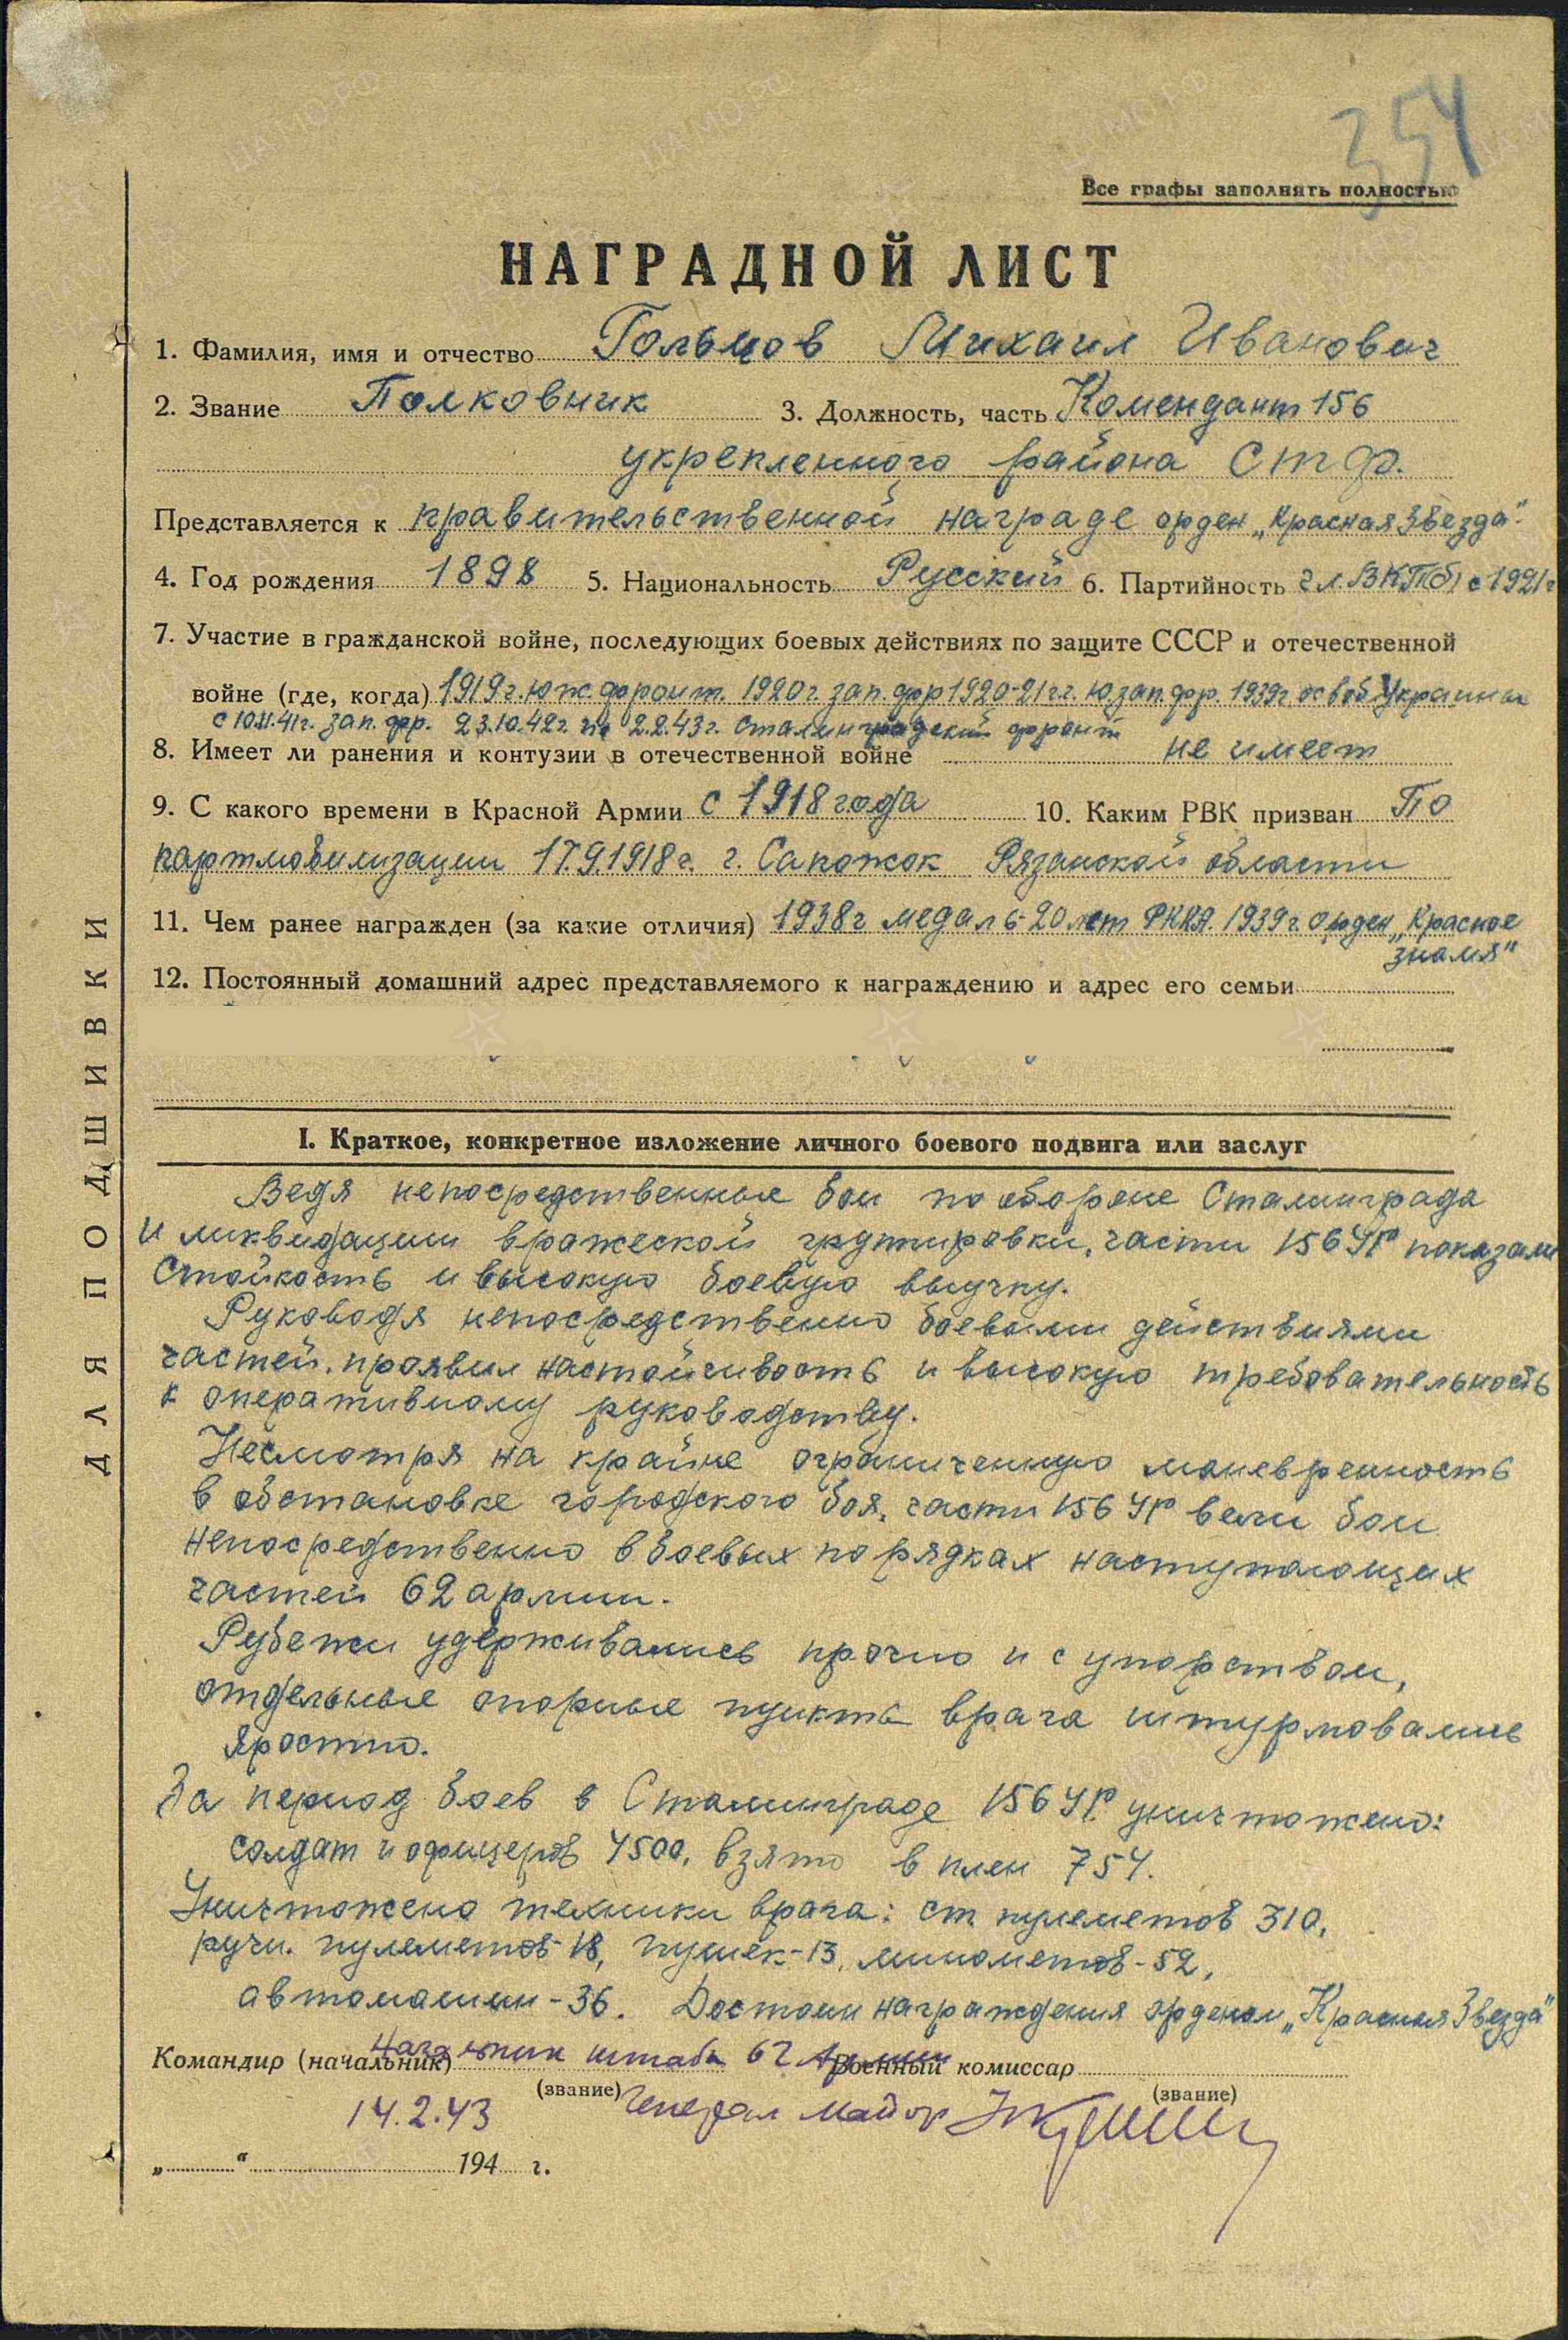 354
Все графы заполнять полностью
НАГРАДНОЙ ЛИСТ
1. Фамилия, имя и отчество Гольцов Михаил Иванович
2. Звание Полковник 3. Должность, часть Комендант 156
укрепленного района Ст ф.
Представляется к правительственной награде орден „Красная Звезда".
4. Год рождения 1898 5. Национальность Русский 6. Партийность чл. ВКП(б) с 1921г
7. Участие в гражданской войне, последующих боевых действиях по защите СССР и отечественной
войне (где, когда) 1919г. Юж. фронт. 1920г. зап. фр 1920-21г.г. Юзап. фр. 1939г. освоб Украины
с 10.11.41г. зап. фр. 23.10.42г. по 2.2.43г. Сталинградский фронт
8. Имеет ли ранения и контузии в отечественной войне не имеет
9. С какого времени в Красной Армии с 1918 года 10. Каким РВК призван По
партмобилизации 17.9.1918г. г. Сапожок Рязанской области
11. Чем ранее награжден (за какие отличия) 1938г медаль-20 лет РККА. 1939г. Орден „Красное
знамя"
12. Постоянный домашний адрес представляемого к награждению и адрес его семьи
I. Краткое, конкретное изложение личного боевого подвига или заслуг
Ведя непосредственные бои по обороне Сталинграда
и ликвидации вражеской группировки, части 156 УР показали
стойкость и высокую боевую выучку.
Руководя непосредственно боевыми действиями
частей, проявил настойчивость и высокую требовательность
к оперативному руководству.
Несмотря на крайне ограниченную маневренность
в обстановке городского боя, части 156 УР вели бои
непосредственно в боевых порядках наступающих
частей 62 армии.
Рубежи удерживались прочно и с упорством,
отдельные опорные пункты врага штурмовались
яростно.
За период боев в Сталинграде 156 УР. уничтожено:
солдат и офицеров 4500, взято в плен 754.
Уничтожено техники врага: ст. пулеметов 310,
ручн. пулеметов-18, пушек-13, минометов-52,
автомашин-36. Достоин награждения орденом „Красная Звезда"
Командир (начальник) Начальник штаба 62 Армии Военный комиссар
(звание) Генерал майор (звание)
14.2.43
„ " 194 г.
ДЛЯ ПОДШИВКИ